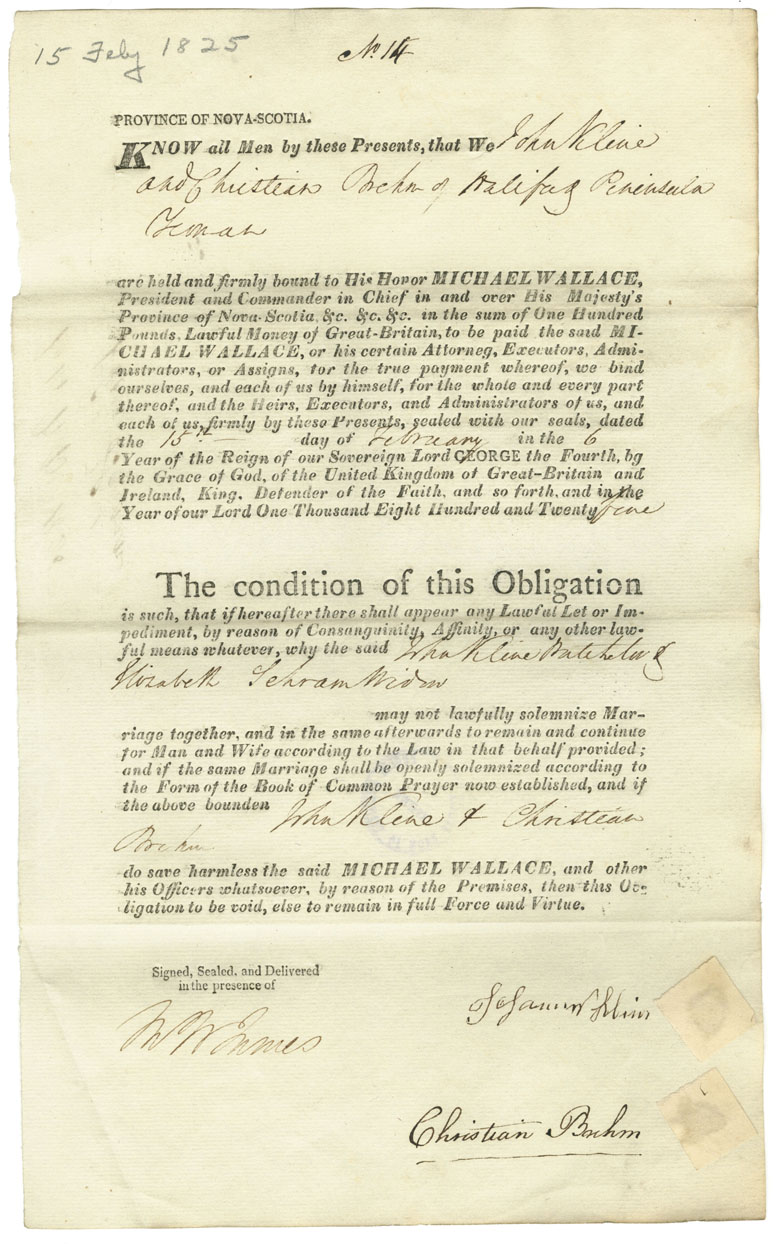 15 Feby 1825
No. 14
PROVINCE OF NOVA-SCOTIA.
KNOW all Men by these Presents, that We John Kline
and Christian Brehm of Halifax Peninsula
Yeoman
are held and firmly bound to His Honor MICHAEL WALLACE,
President and Commander in Chief in and over His Majesty's
Province of Nova-Scotia, &c. &c. &c. in the sum of One Hundred
Pounds, Lawful Money of Great-Britain, to be paid the said MI-
CHAEL WALLACE, or his certain Attorney, Executors, Admi-
nistrators, or Assigns, for the true payment whereof, we bind
ourselves, and each of us by himself, for the whole and every part
thereof, and the Heirs, Executors, and Administrators of us, and
each of us, firmly by these Presents, sealed with our seals, dated
the 15th day of February in the 6
Year of the Reign of our Sovereign Lord GEORGE the Fourth, by
the Grace of God, of the United Kingdom of Great-Britain and
Ireland, King, Defender of the Faith, and so forth, and in the
Year of our Lord One Thousand Eight Hundred and Twenty five
The condition of this Obligation
is such, that if hereafter there shall appear any Lawful Let or Im-
pediment, by reason of Consanguinity, Affinity, or any other law-
ful means whatever, why the said John Kline Batchelor &
Elizabeth Schram Widow
may not lawfully solemnize Mar-
riage together, and in the same afterwards to remain and continue
for Man and Wife according to the Law in that behalf provided;
and if the same Marriage shall be openly solemnized according to
the Form of the Book of Common Prayer now established, and if
the above bounden John Kline & Christian
Brehm
do save harmless the said MICHAEL WALLACE, and other
his Officers whatsoever, by reason of the Premises, then this Ob-
ligation to be void, else to remain in full Force and Virtue.
Signed, Sealed, and Delivered
in the presence of
Johannes Klein
Christian Brehm